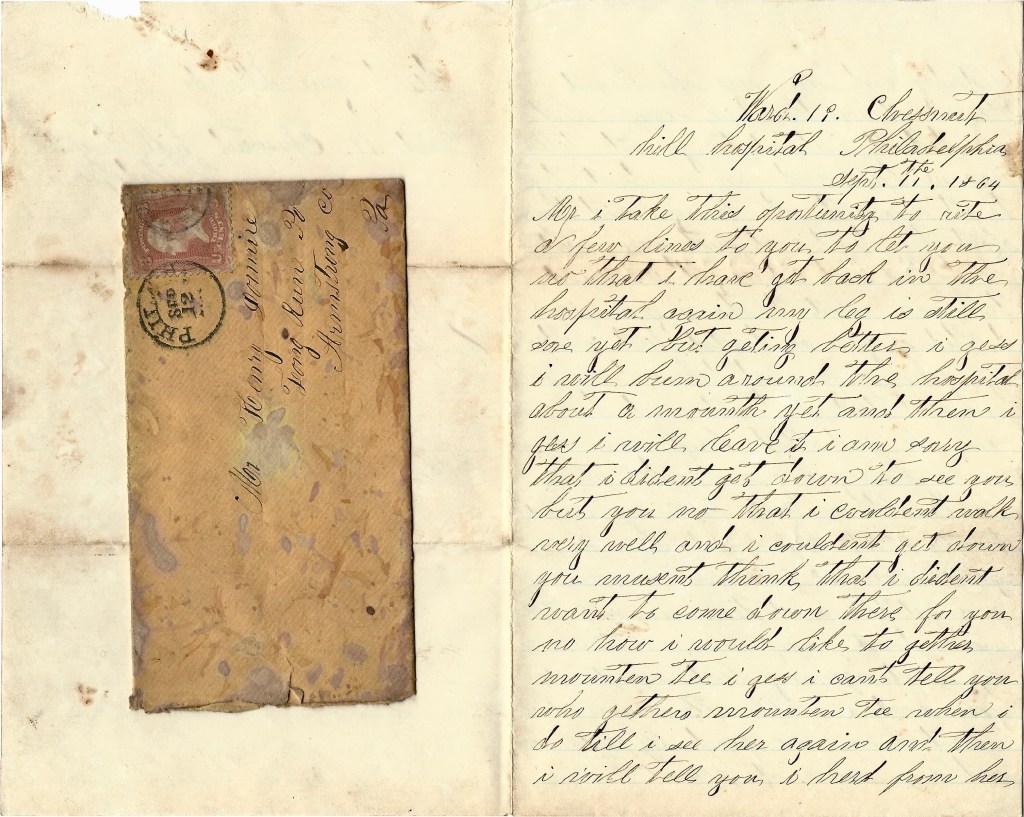 Mr Henry
Long Run Po
Armstrong Co
Pa
PHIL
SEP
12
Ward. 19. Chessnut
hill hospital Philadelphia
Sept. 11.the 1864
Mr i take this oportunity to rite
a few lines to you to let you
no that i have got back in the
hospital again my leg is still
sore yet but geting better i gess
i will bum around the hospital
about a mounth yet and then i
gess i will leave it i am sory
that i dident get down to see you
but you no that i couldent walk
very well and i couldent get down
you musent think that i dident
want to come down there for you
no how i would like to gether
mounten tee i gess i cant tell you
who gethers mounten tee when i
do till i see her again and then
i will tell you i herd from her